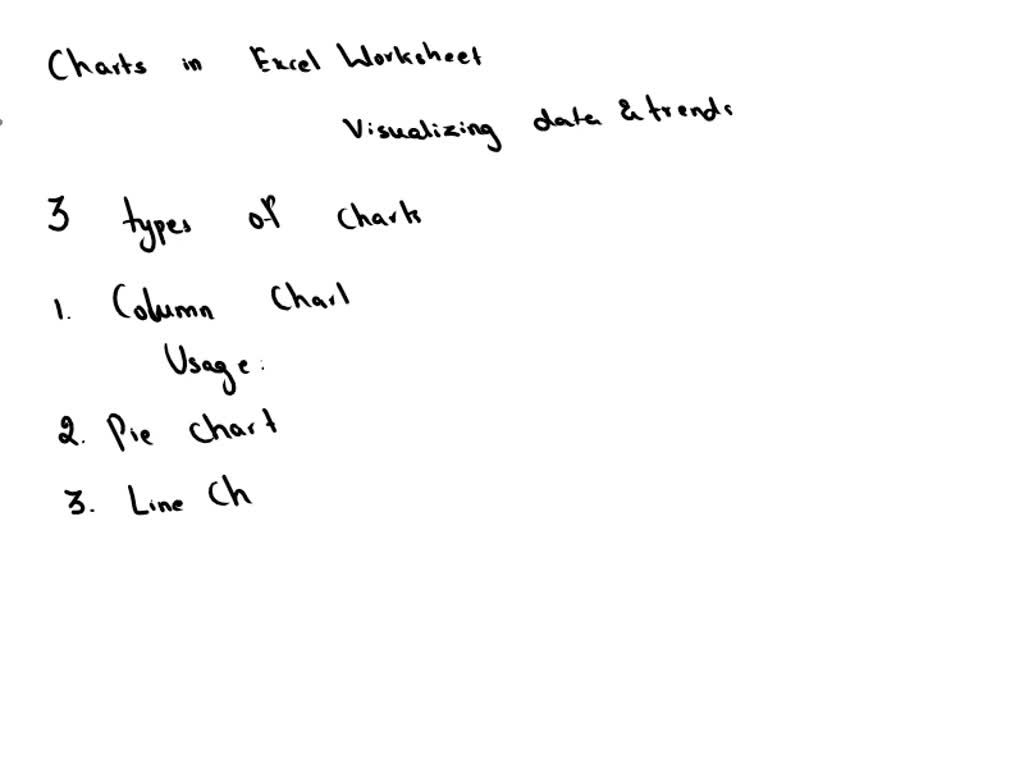 Charts in Excel Worksheet
Visualizing data & trends
3 types of charts
1. Column Chart
Usage:
2. Pie chart
3. Line Ch